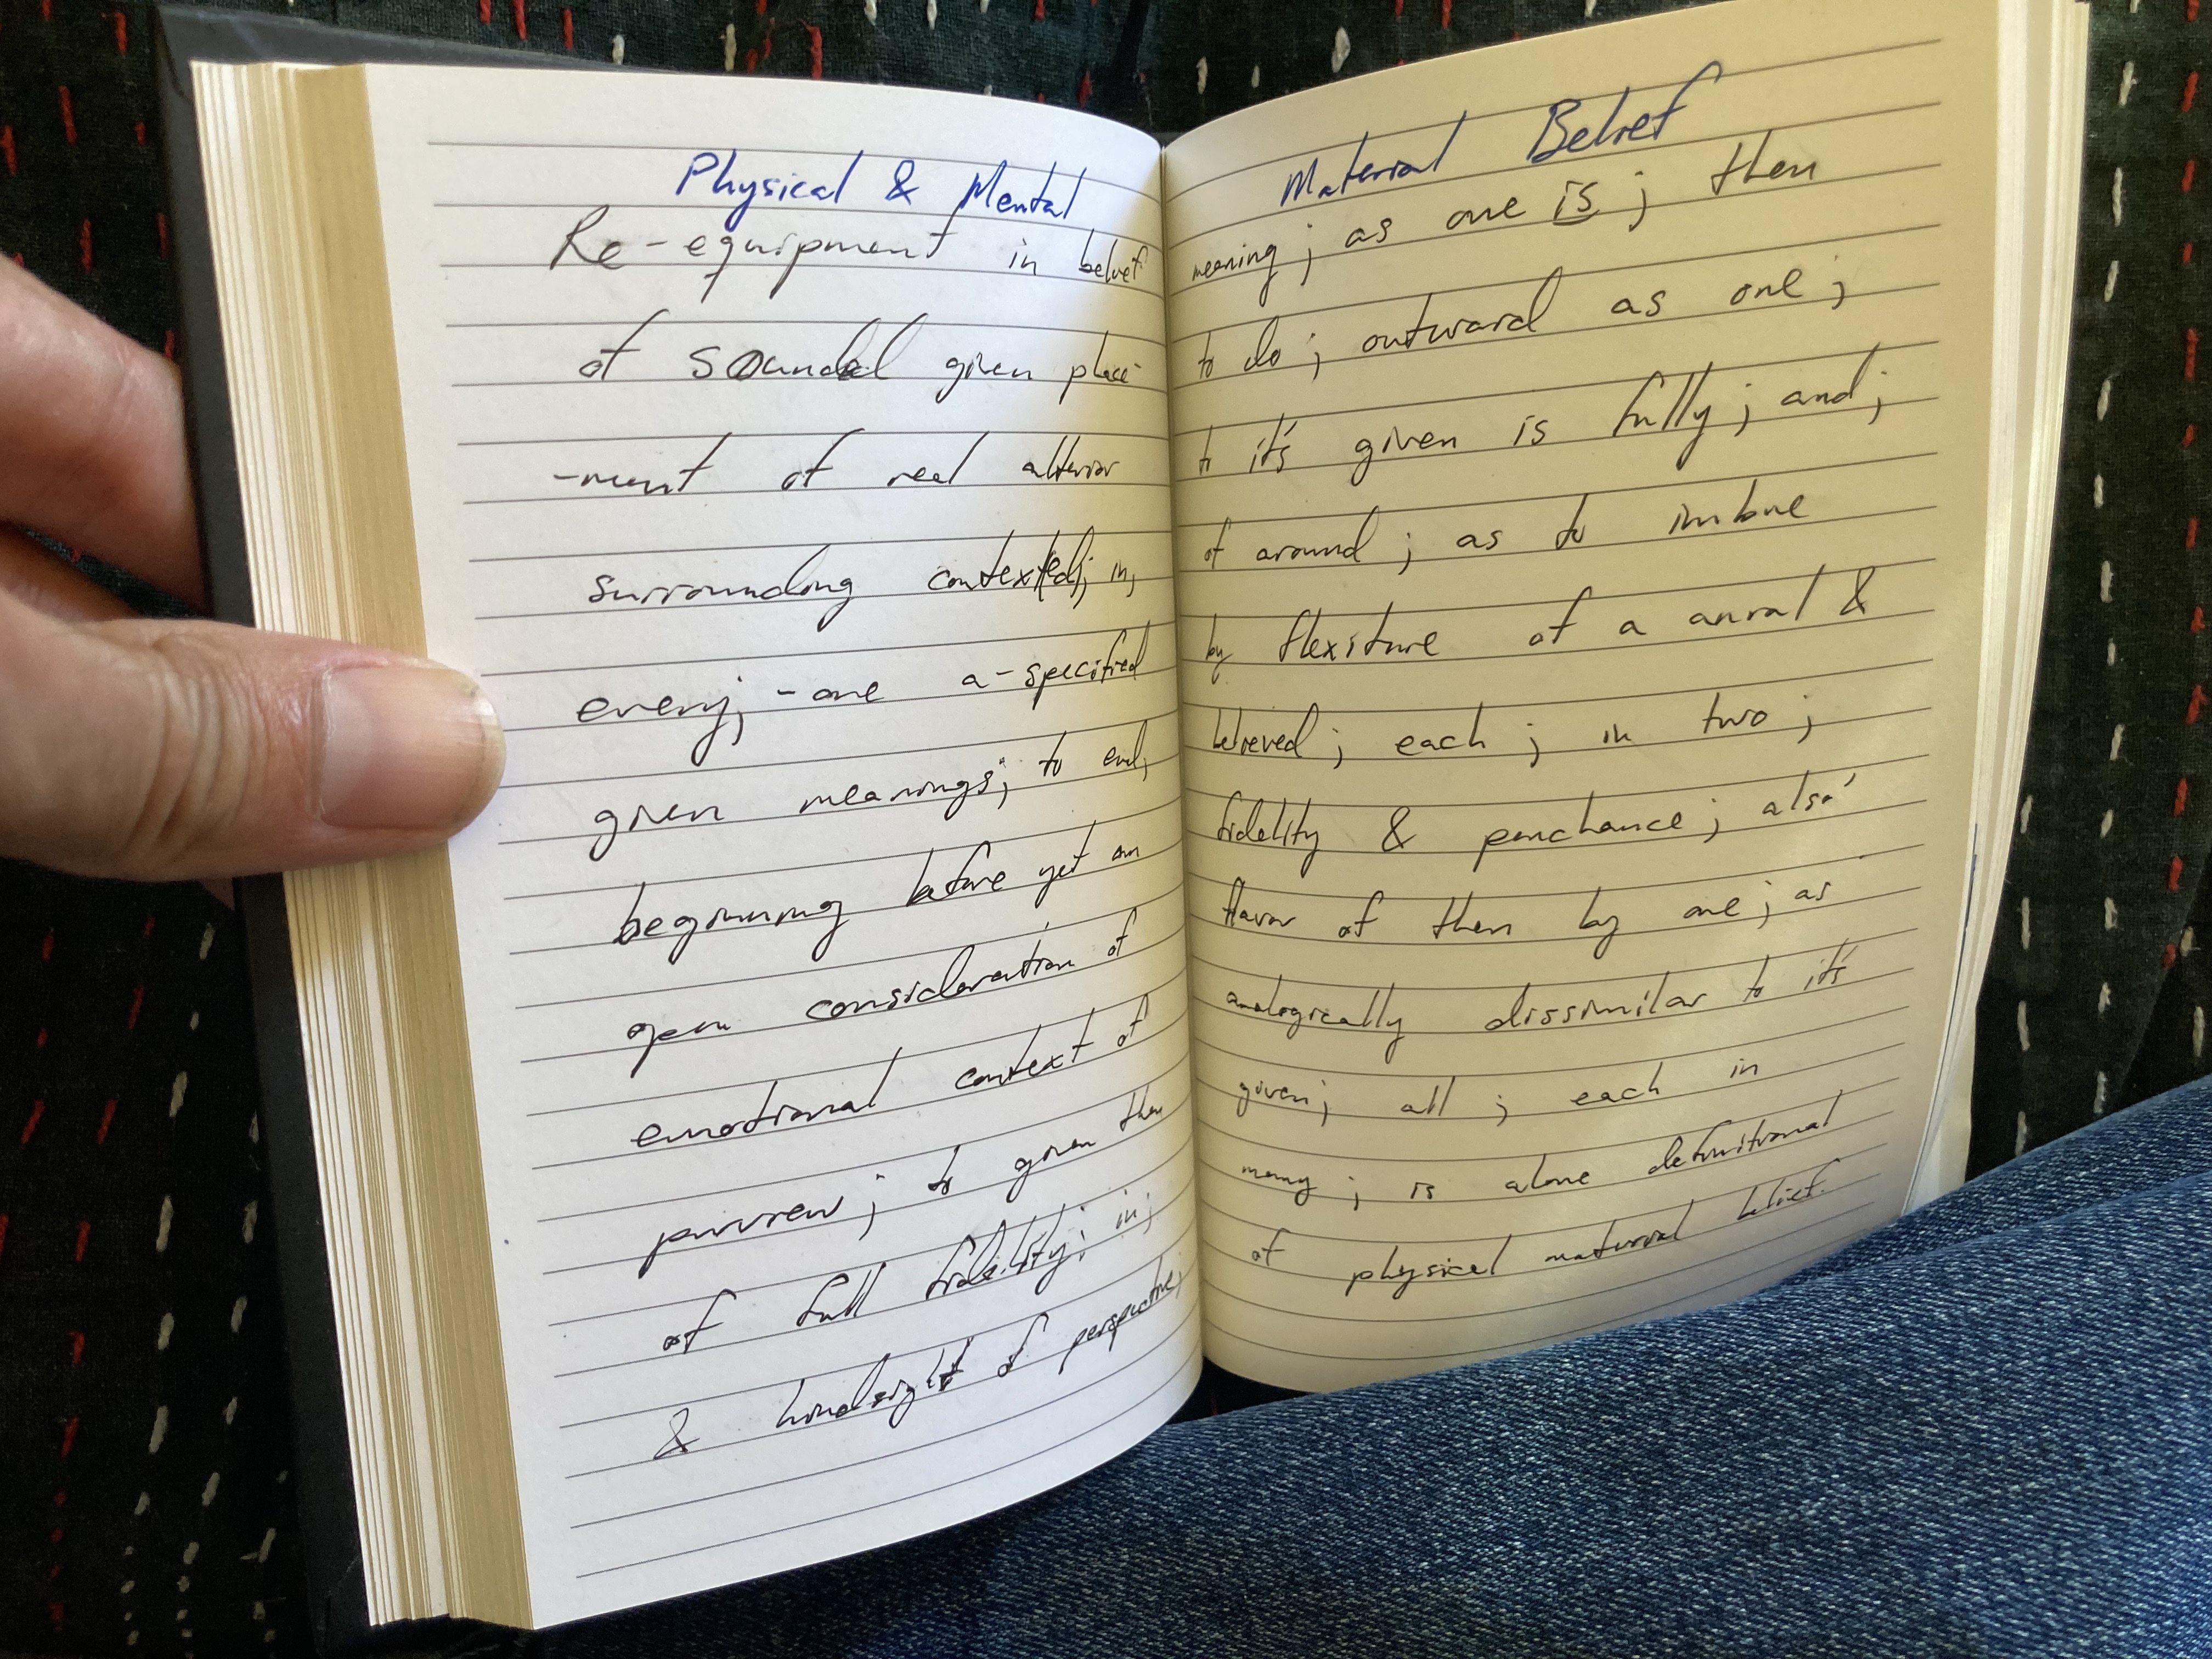 Physical & Mental
Re-equipment in belief
of sounded given place-
-ment of real
surrounding context(ed); in,
every; -one a-specified
given meanings; to end,
beginning before yet an
open consideration of
emotional context of
purview; to given then
of full fidelity; in;
& hindsight of perspective;
Material Belief
meaning; as one is; then
to do; outward as one;
to it's given is fully; and;
of around; as to imbue
by flexiture of a &
believed; each; in two;
fidelity & penchance; also'
flavor of then by one; as
analogically dissimilar to it's
given; all; each in
many; is alone definitional
of physical material belief.